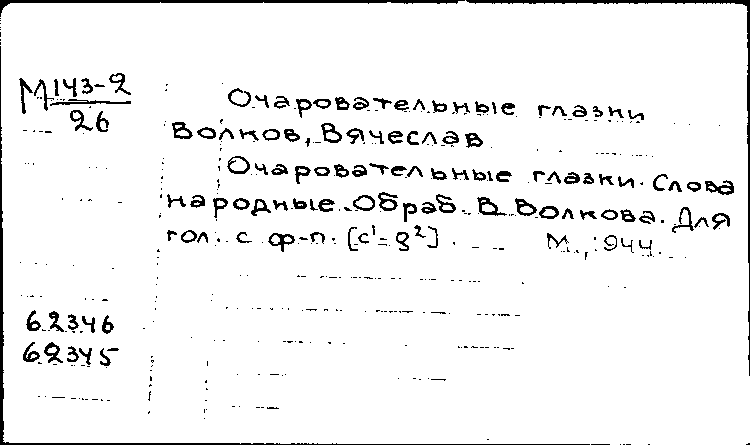 М 143-2
26
Очаровательные глазки
Волков, Вячеслав
Очаровательные глазки. Слова
народные. Обраб. В. Волкова. Для
гол. с ф-п. [c¹-g²]. М., 1944.
62346
62345